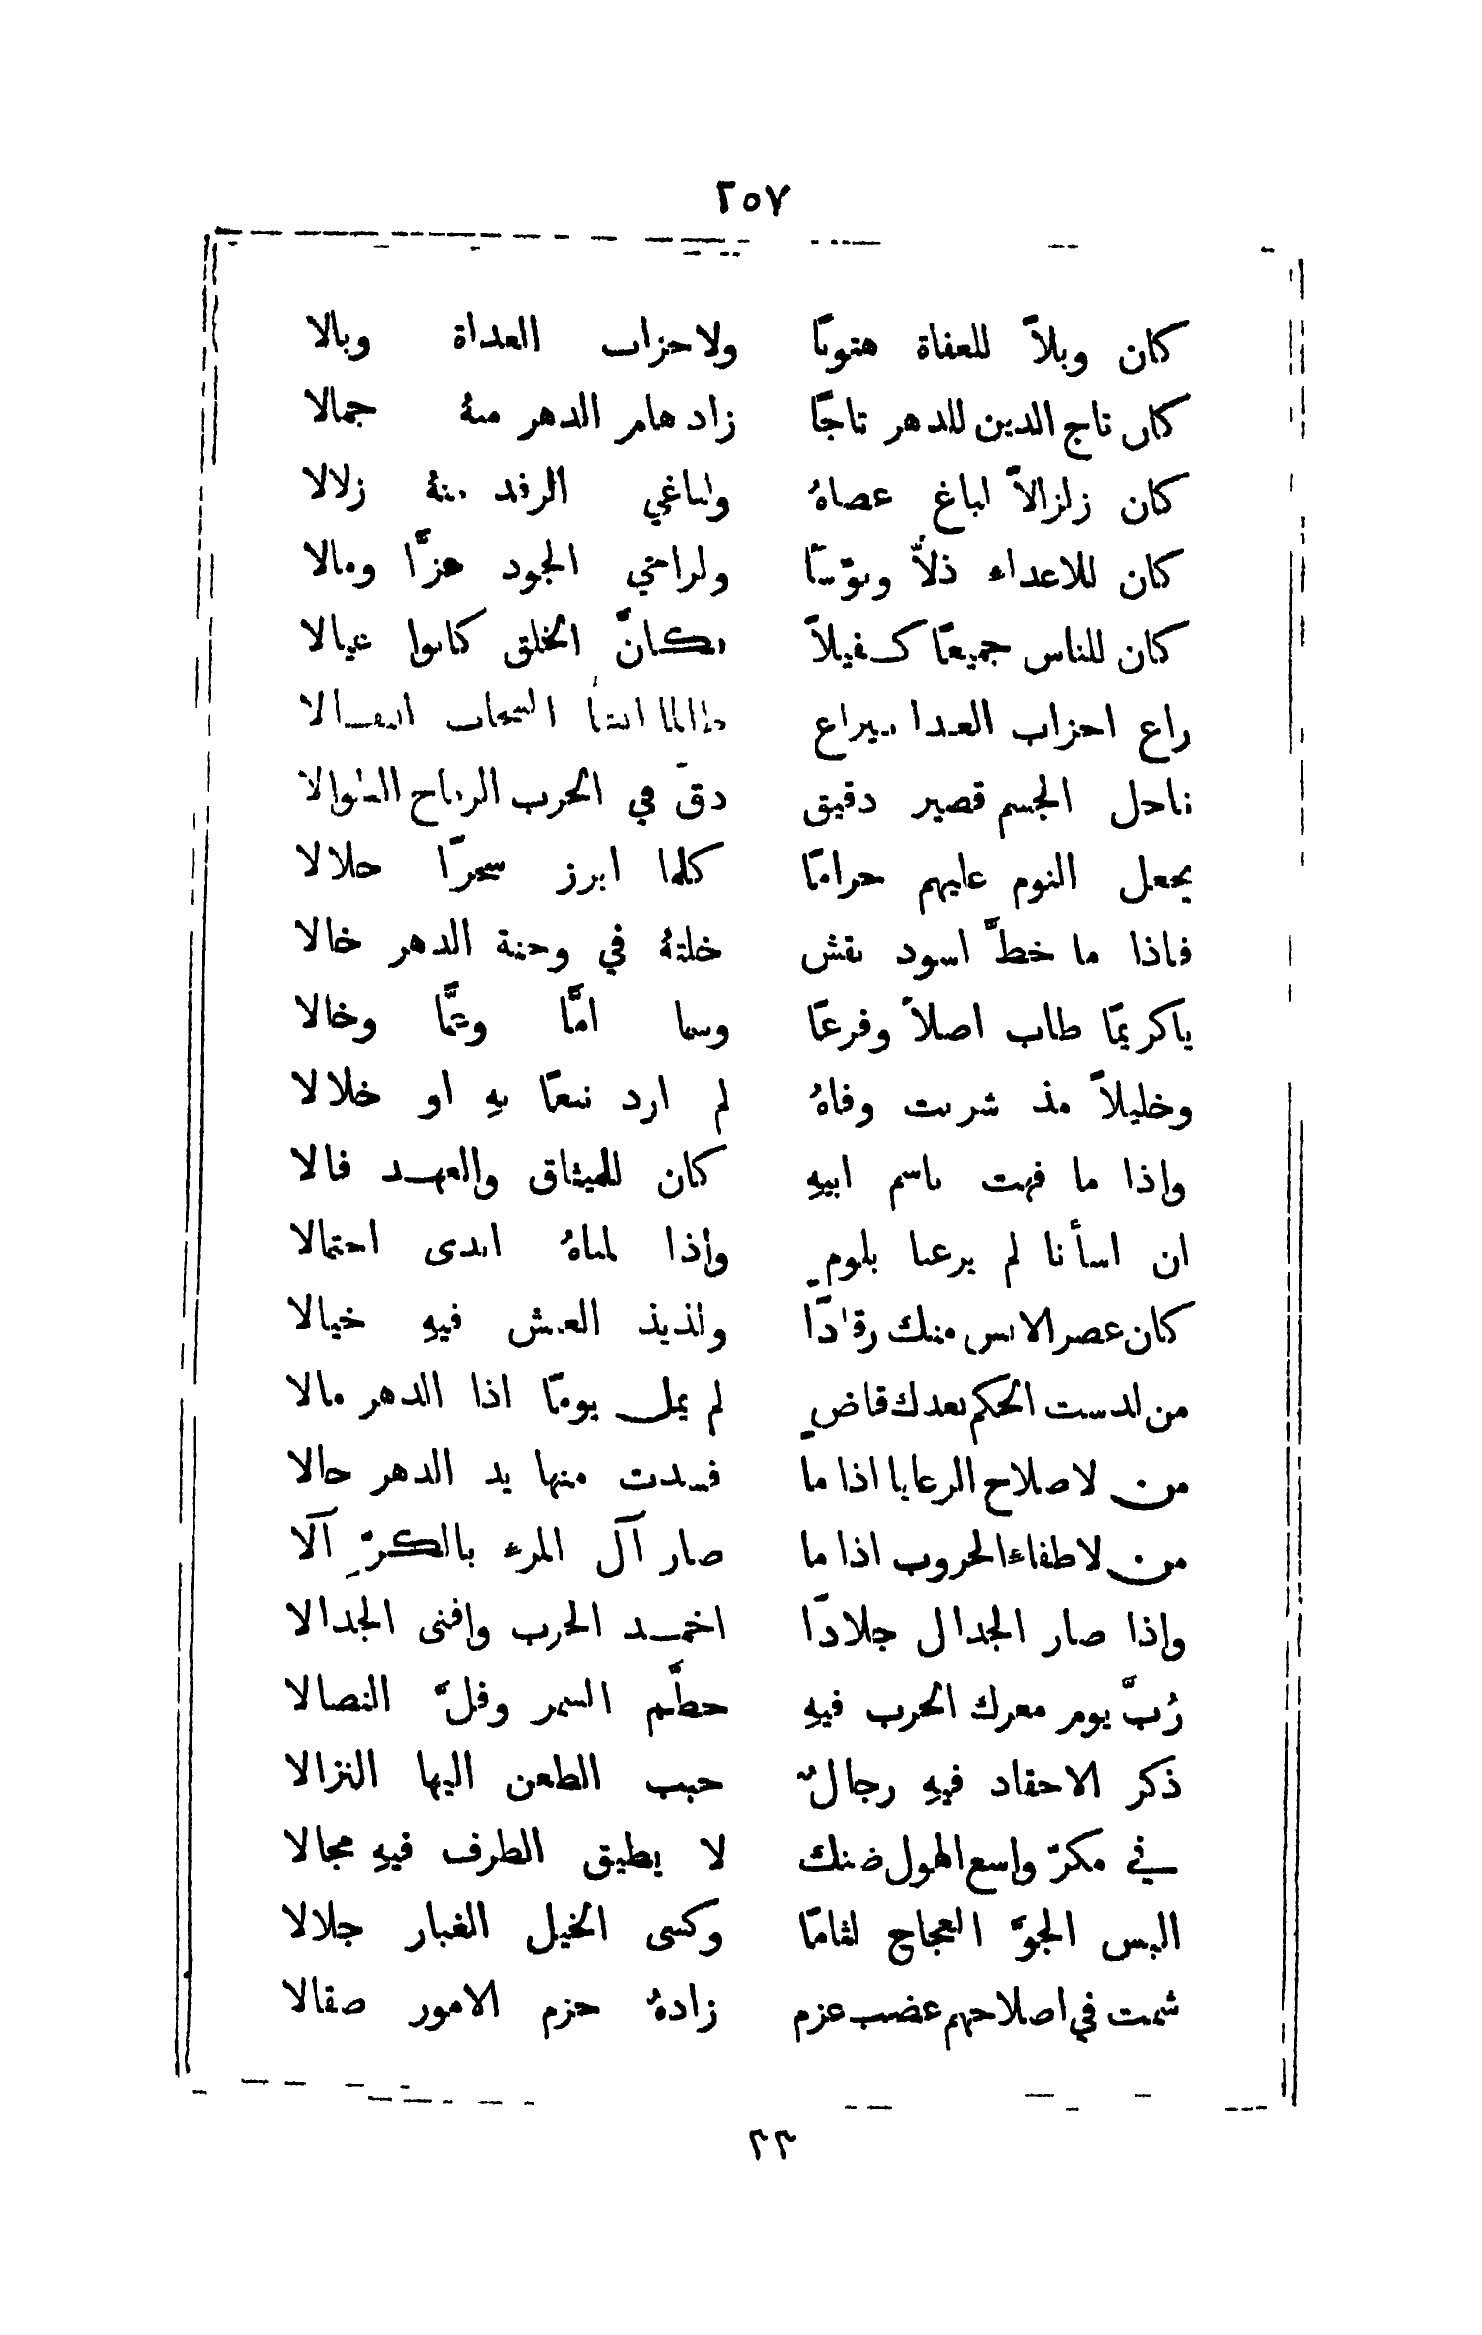 ٢٥٧
كان وبلاً للعفاة هتونًا ولاحزاب العداة وبالا
كان تاج الدين للدهر تاجًا زاد هام الدهر منهُ جمالا
كان زلزالاً لباغ عصاهُ ولباغي الرفد منهُ زلالا
كان للاعداء ذلاًّ وبؤسًا ولراجي الجود عزًّا ومالا
كان للناس جميعًا كفيلاً فكأنَّ الخلق كانوا عيالا
راع احزاب العدا بيراع طالما انشأ السحاب الثقالا
ناحل الجسم قصير دقيق دقّ في الحرب الرماح الطوالا
يجعل النوم عليهم حرامًا كلما ابرز سحرًا حلالا
فاذا ما خطَّ اسود نقش خلتهُ في وجنة الدهر خالا
ياكريمًا طاب اصلاً وفرعًا وسما امًّا وعمًّا وخالا
وخليلاً مذ شربت وفاهُ لم ارد نبعًا بهِ او خلالا
واذا ما فهت باسم ابيهِ كان للميثاق والعهد فالا
ان اسأنا لم يرعنا بلومٍ واذا لمناهُ ابدى احتمالا
كان عصر الانس منك رقادًا ولذيذ العيش فيهِ خيالا
من لدست الحكم بعدك قاضٍ لم يمل يومًا اذا الدهر مالا
من لاصلاح الرعايا اذا ما فسدت منها يد الدهر حالا
من لاطفاء الحروب اذا ما صار آل المرء بالكرّ آلا
واذا صار الجدال جلادًا اخمد الحرب وافنى الجدالا
رُبَّ يوم معرك الحرب فيهِ حطَّم السمر وفلَّ النصالا
ذكر الاحقاد فيهِ رجالٌ حبب الطعن اليها النزالا
في مكرّ واسع الهول ضنك لا يطيق الطرف فيهِ مجالا
البس الجوَّ العجاج لثامًا وكسى الخيل الغبار جلالا
شمت في اصلاحهم عضب عزم زادهُ حزم الامور صقالا
٢٢